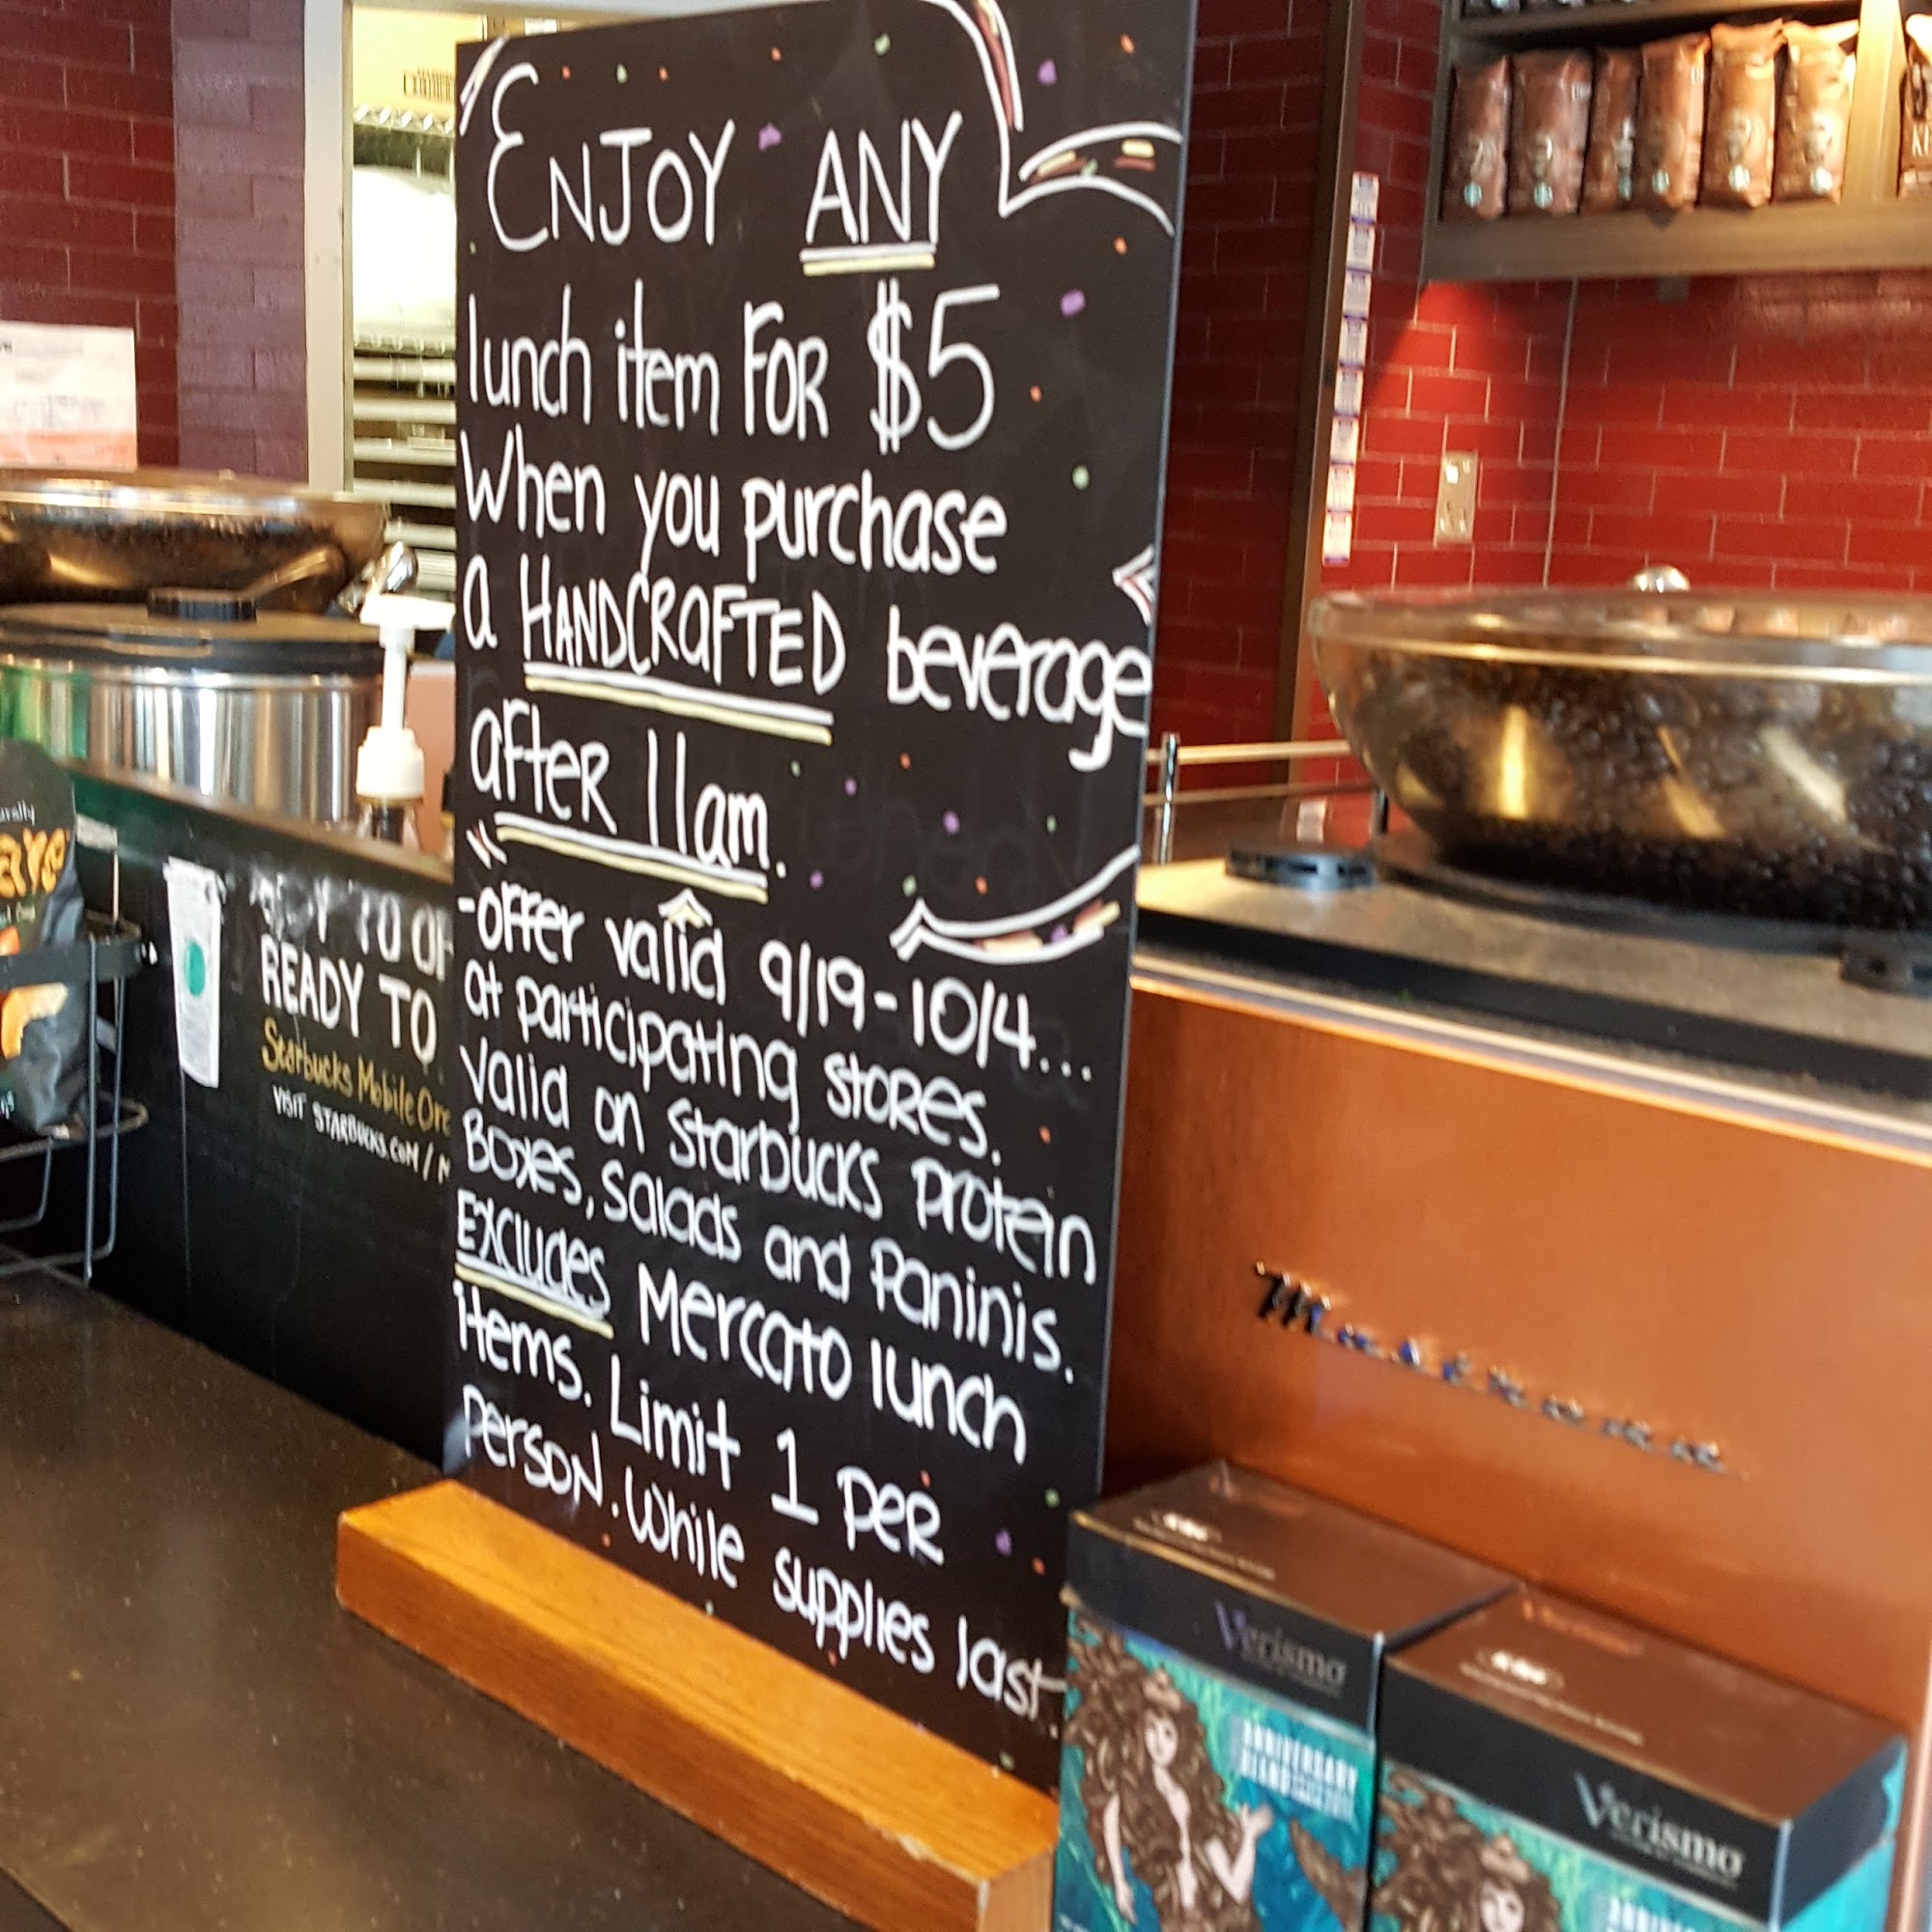 ENJOY ANY
lunch item FOR $5
When you purchase
a HANDCRAFTED beverage
after 11am.
-offer valid 9/19-10/4...
at participating stores.
Valid on Starbucks protein
Boxes, salads and Paninis.
Excludes Mercato lunch
items. Limit 1 per
person. While supplies last.
READY TO
Starbucks Mobile
VISIT STARBUCKS.COM/
Mastrena
Verismo
ANNIVERSARY
BLEND
Verismo
ANNIVERSARY